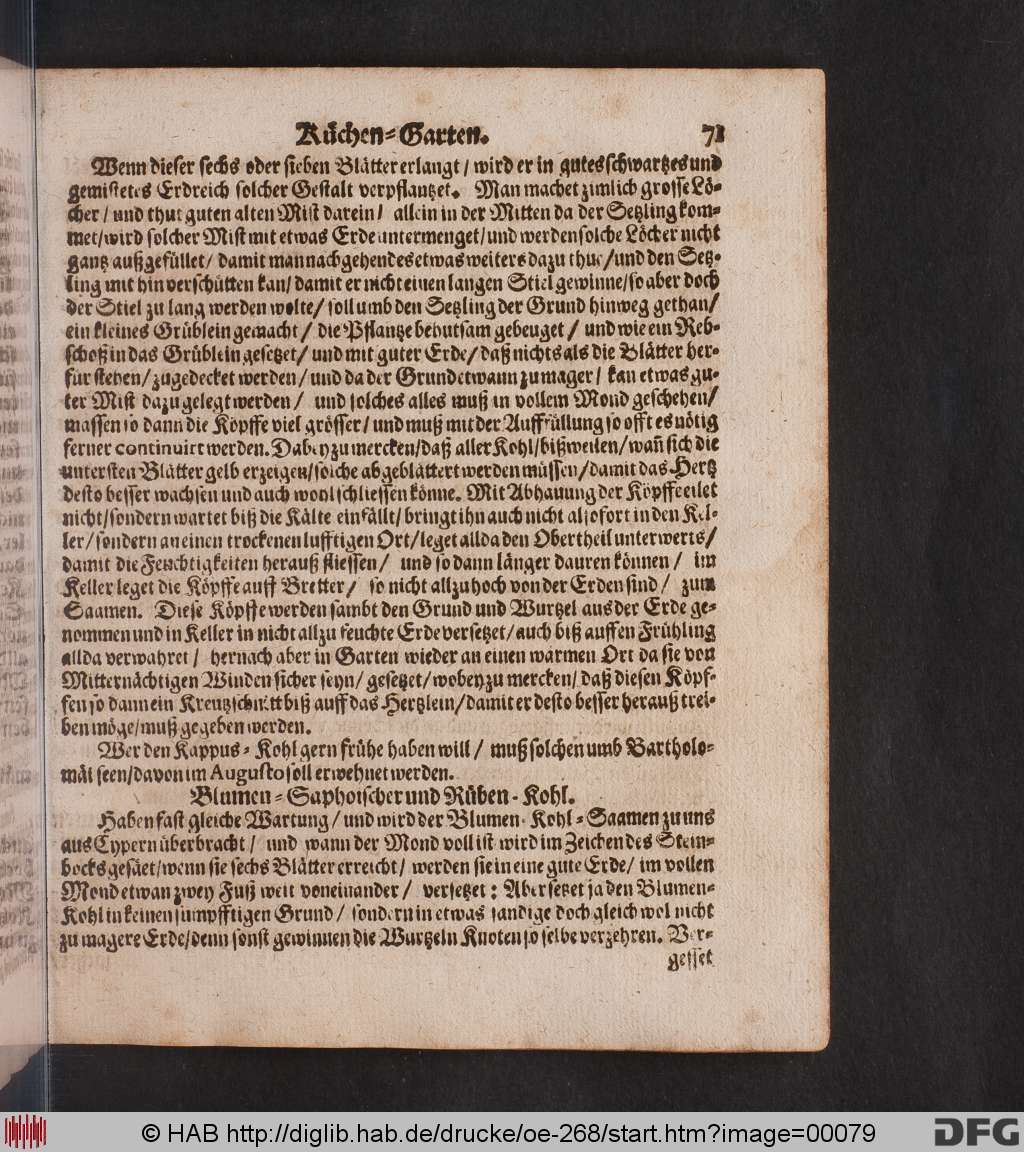 Küchen-Garten. 71
Wenn dieser sechs oder sieben Blätter erlangt / wird er in gutes schwartzes und
gemistetes Erdreich solcher Gestalt verpflantzet. Man machet zimlich grosse Lö-
cher / und thut guten alten Mist darein / allein in der Mitten da der Setzling kom-
met / wird solcher Mist mit etwas Erde untermenget / und werden solche Löcher nicht
gantz außgefüllet / damit man nachgehendes etwas weiters dazu thue / und den Setz-
ling mit hin verschütten kan / damit er nicht einen langen Stiel gewinne / so aber doch
der Stiel zu lang werden wolte / soll umb den Setzling der Grund hinweg gethan /
ein kleines Grüblein gemacht / die Pflantze behutsam gebeuget / und wie ein Reb-
schoß in das Grüblein gesetzet / und mit guter Erde / daß nichts als die Blätter her-
für stehen / zugedecket werden / und da der Grund etwann zu mager / kan etwas gu-
ter Mist dazu gelegt werden / und solches alles muß in vollem Mond geschehen /
massen so dann die Köpffe viel grösser / und muß mit der Auffüllung so offt es nötig
ferner continuirt werden. Dabey zu mercken / daß aller Kohl / bißweilen / wañ sich die
untersten Blätter gelb erzeigen / solche abgeblättert werden müssen / damit das Hertz
desto besser wachsen und auch wohl schliessen könne. Mit Abhauung der Köpffe eilet
nicht / sondern wartet biß die Kälte einfällt / bringt ihn auch nicht alsofort in den Kel-
ler / sondern an einen trockenen lufftigen Ort / leget allda den Obertheil unterwerts /
damit die Feuchtigkeiten herauß fliessen / und so dann länger dauren können / im
Keller leget die Köpffe auff Bretter / so nicht allzu hoch von der Erden sind / zum
Saamen. Diese Köpffe werden sambt den Grund und Wurtzel aus der Erde ge-
nommen und in Keller in nicht allzu feuchte Erde versetzet / auch biß auff en Frühling
allda verwahret / hernach aber in Garten wieder an einen warmen Ort da sie von
Mitternächtigen Winden sicher seyn / gesetzet / wobey zu mercken / daß diesen Köpf-
fen so dann ein Kreutzschnitt biß auff das Hertzlein / damit er desto besser herauß trei-
ben möge / muß gegeben werden.
Wer den Kappus-Kohl gern frühe haben will / muß solchen umb Bartholo-
mäi seen / davon im Augusto soll erwehnet werden.
Blumen-Saphoischer und Rüben-Kohl.
Haben fast gleiche Wartung / und wird der Blumen-Kohl-Saamen zu uns
aus Cypern überbracht / und wann der Mond voll ist wird im Zeichen des Stein-
bocks gesäet / wenn sie sechs Blätter erreicht / werden sie in eine gute Erde / im vollen
Mond etwan zwey Fuß weit voneinander / versetzet: Aber setzet ja den Blumen-
Kohl in keinen sumpfftigen Grund / sondern in etwas sandige doch gleich wol nicht
zu magere Erde / denn sonst gewinnen die Wurtzeln Knoten so selbe verzehren. Ver-
gesset
© HAB http://diglib.hab.de/drucke/oe-268/start.htm?image=00079
DFG